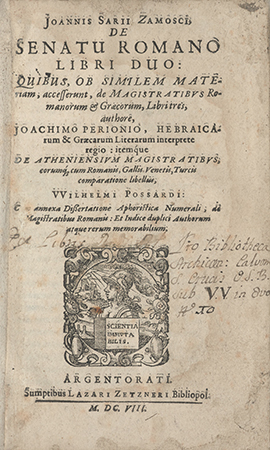 IOANNIS SARII ZAMOSCI,
DE
SENATU ROMANO
LIBRI DUO:
QUIBUS, OB SIMILEM MATE-
riam, accesserunt, de MAGISTRATIBVS Ro-
manorum & Græcorum, Libri tres,
authore,
JOACHIMO PERIONIO, HEBRAICA-
rum & Græcarum Literarum interprete
regio: itemque
DE ATHENIENSIVM MAGISTRATIBVS,
eorumq; cum Romanis, Gallis, Venetis, Turcis
comparatione libellus,
VVILHELMI POSSARDI:
annexa Dissertatione Aphoristica Numerali, de
Magistratibus Romanis: Et Indice duplici Authorum
atque rerum memorabilium.
Ex Libris
Pro Bibliotheca
V.V in
4º
SCIENTIA
IMMUTA
BILIS.
ARGENTORATI.
Sumptibus LAZARI ZETZNERI Bibliopol.
M. DC. VIII.